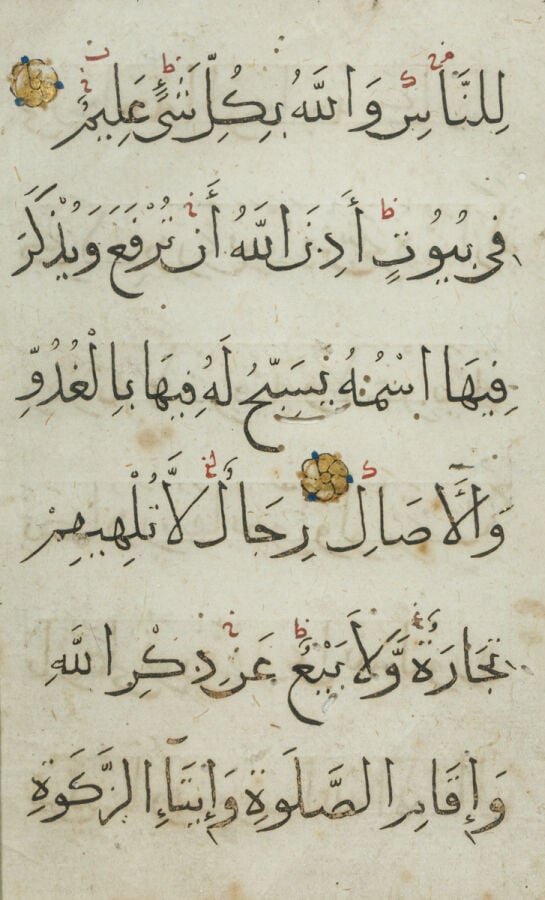 لِلنَّاسِ وَاللَّهُ بِكُلِّ شَىْءٍ عَلِيمٌ
فِى بُيُوتٍ أَذِنَ اللَّهُ أَن تُرْفَعَ وَيُذْكَرَ
فِيهَا اسْمُهُ يُسَبِّحُ لَهُ فِيهَا بِالْغُدُوِّ
وَالْآصَالِ رِجَالٌ لَّا تُلْهِيهِمْ
تِجَارَةٌ وَّلَا بَيْعٌ عَن ذِكْرِ اللَّهِ
وَإِقَامِ الصَّلَوةِ وَإِيتَاءِ الزَّكَوةِ